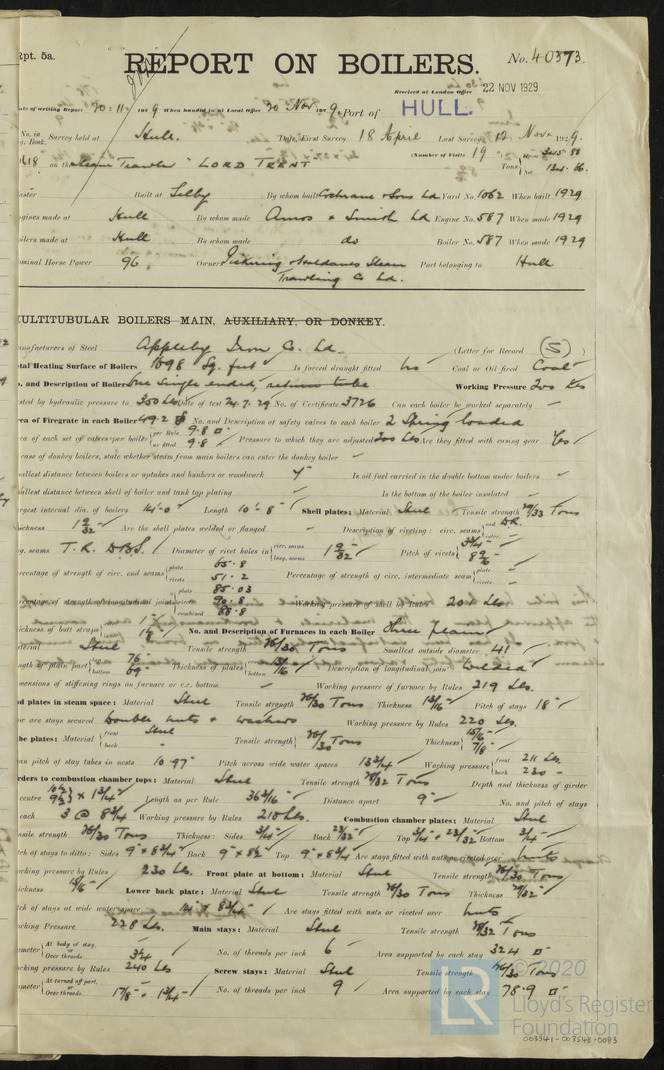 Rpt. 5a.
REPORT ON BOILERS.
No. 40373.
Received at London Office
22 NOV 1929
ate of writing Report 20.11. 1929 When handed in at Local Office 20 Nov 1929. Port of HULL.
No. in Survey held at Hull. Date, First Survey 18 April Last Survey 12 Nov. 1929.
g. Book.
on the Steam Trawler "LORD TRENT" (Number of Visits 19) Tons
aster Built at Selby By whom built Cochrane & Sons Ld Yard No. 1062 When built 1929
ngines made at Hull By whom made Amos & Smith Ld Engine No. 587 When made 1929
oilers made at Hull By whom made do Boiler No. 587 When made 1929
ominal Horse Power 96. Owners Pickering & Haldanes Steam Trawling Co Ld. Port belonging to Hull
MULTITUBULAR BOILERS MAIN, AUXILIARY, OR DONKEY.
anufacturers of Steel Appleby Iron Co. Ld. (Letter for Record (S))
tal Heating Surface of Boilers 1698 Sq. feet Is forced draught fitted No Coal or Oil fired Coal
o. and Description of Boilers One Single ended, return tube Working Pressure 200 Lbs
sted by hydraulic pressure to 350 Lbs Date of test 24.7.29 No. of Certificate 3726 Can each boiler be worked separately -
rea of Firegrate in each Boiler 49.2 No. and Description of safety valves to each boiler 2 Spring loaded
ea of each set of valves per boiler {per Rule 9.8 as fitted 9.8 Pressure to which they are adjusted 200 Lbs Are they fitted with easing gear Yes
case of donkey boilers, state whether steam from main boilers can enter the donkey boiler -
mallest distance between boilers or uptakes and bunkers or woodwork Is oil fuel carried in the double bottom under boilers -
mallest distance between shell of boiler and tank top plating - Is the bottom of the boiler insulated -
argest internal dia. of boilers 14'-0" Length 10'-8" Shell plates: Material Steel Tensile strength 29/33 Tons
hickness 1 9/32 Are the shell plates welded or flanged - Description of riveting: circ. seams {end DR. inter. -
g. seams T.R. D.B.S. Diameter of rivet holes in {circ. seams long. seams 1 9/32 Pitch of rivets
ercentage of strength of circ. end seams {plate 65.8 rivets 51.2 Percentage of strength of circ. intermediate seam {plate - rivets -
ercentage of strength of longitudinal joint {plate 85.03 rivets 90.8 combined 88.8 Working pressure of shell by Rules 201 Lbs
ickness of butt straps No. and Description of Furnaces in each Boiler Three Plain
aterial Steel Tensile strength 26/30 Tons Smallest outside diameter 41"
ngth of plain part {top 76" bottom 69" Thickness of plates {crown bottom 13/16" Description of longitudinal join Welded
imensions of stiffening rings on furnace or c.c. bottom - Working pressure of furnace by Rules 219 Lbs.
nd plates in steam space: Material Steel Tensile strength 26/30 Tons Thickness 13/16" Pitch of stays 18"
ow are stays secured Double nuts & washers Working pressure by Rules 220 Lbs.
ube plates: Material {front Steel back - Tensile strength 26/30 Tons Thickness {15/16" 7/8"
an pitch of stay tubes in nests 10.97" Pitch across wide water spaces 13 3/4" Working pressure {front 211 Lbs back 230 -
irders to combustion chamber tops: Material Steel Tensile strength 28/32 Tons Depth and thickness of girder
centre 10 1/2 9 1/2} x 1 3/4" Length as per Rule 36 3/16" Distance apart 9" No. and pitch of stays
each 3 @ 8 3/4" Working pressure by Rules 210 Lbs. Combustion chamber plates: Material Steel
nsile strength 26/30 Tons Thickness: Sides 3/4" Back 23/32" Top 3/4" & 23/32" Bottom 3/4"
tch of stays to ditto: Sides 9" x 8 3/4" Back 9" x 8 1/2" Top 9" x 8 3/4" Are stays fitted with nuts or riveted over nuts
orking pressure by Rules 230 Lbs. Front plate at bottom: Material Steel Tensile strength 26/30 Tons
hickness 15/16" Lower back plate: Material Steel Tensile strength 26/30 Tons Thickness
tch of stays at wide water space 14" x 8 3/4" Are stays fitted with nuts or riveted over nuts
orking Pressure 228 Lbs. Main stays: Material Steel Tensile strength 28/32 Tons
iameter {At body of stay, or Over threads 3 1/4" No. of threads per inch 6 Area supported by each stay 324
orking pressure by Rules 240 Lbs Screw stays: Material Steel Tensile strength 26/30 Tons
iameter {At turned off part, or Over threads 1 7/8" & 1 3/4" No. of threads per inch 9 Area supported by each stay 78.9
© 2020
LR
Lloyd's Register
Foundation
003541-003548-0083